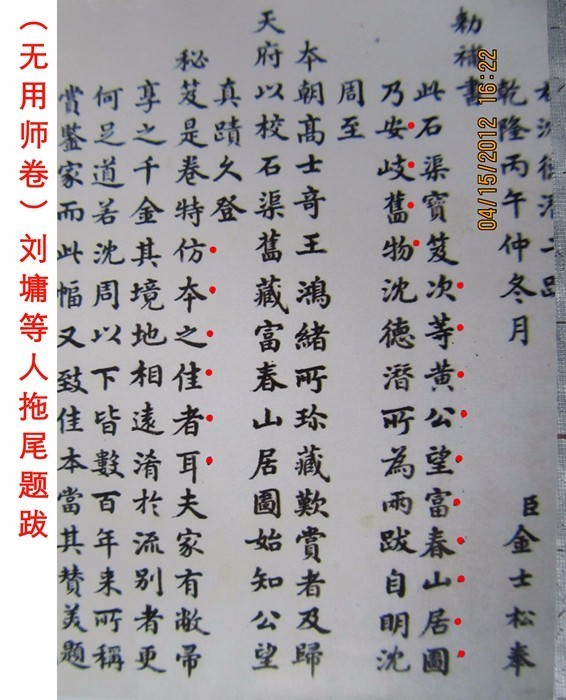 乾隆丙午仲冬月 臣金士松奉
勅補書
此石渠寶笈次等黃公望富春山居圖
乃安岐舊物沈德潛所為兩跋自明沈
周至
本朝高士奇王鴻緒所珍藏歎賞者及歸
天府以校石渠舊藏富春山居圖始知公望
真蹟久登
秘笈是卷特仿本之佳者耳夫家有敝帚
享之千金其境地相遠淆於流別者更
何足道若沈周以下皆數百年來所稱
賞鑒家而此幅又致佳本當其贊美題
04/15/2012 16:22
（无用师卷）刘墉等人拖尾题跋